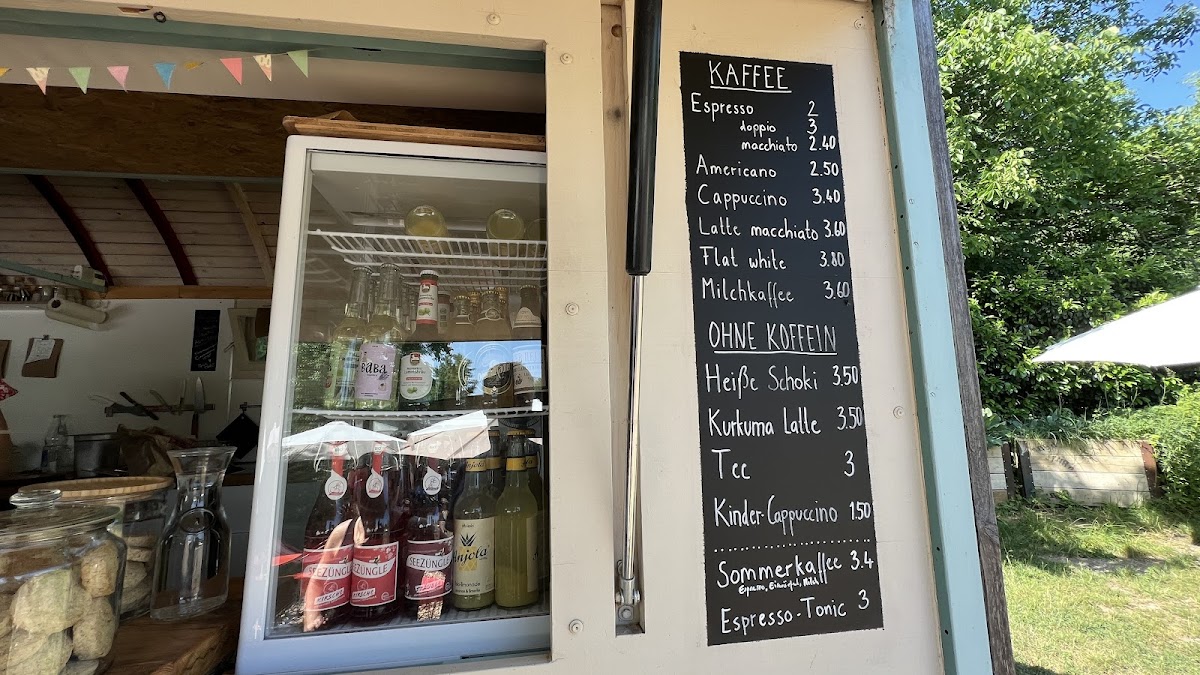 KAFFEE
Espresso 2
doppio 3
macchiato 2.40
Americano 2.50
Cappuccino 3.40
Latte macchiato 3.60
Flat white 3.80
Milchkaffee 3.60
OHNE KOFFEIN
Heiße Schoki 3.50
Kurkuma Latte 3.50
Tee 3
Kinder-Cappuccino 1.50
Sommerkaffee 3.4
Espresso, Eiswürfel, Milch
Espresso-Tonic 3
BABA
SEEZÜNGLE
KIRSCHE
SEEZÜNGLE
Anjola